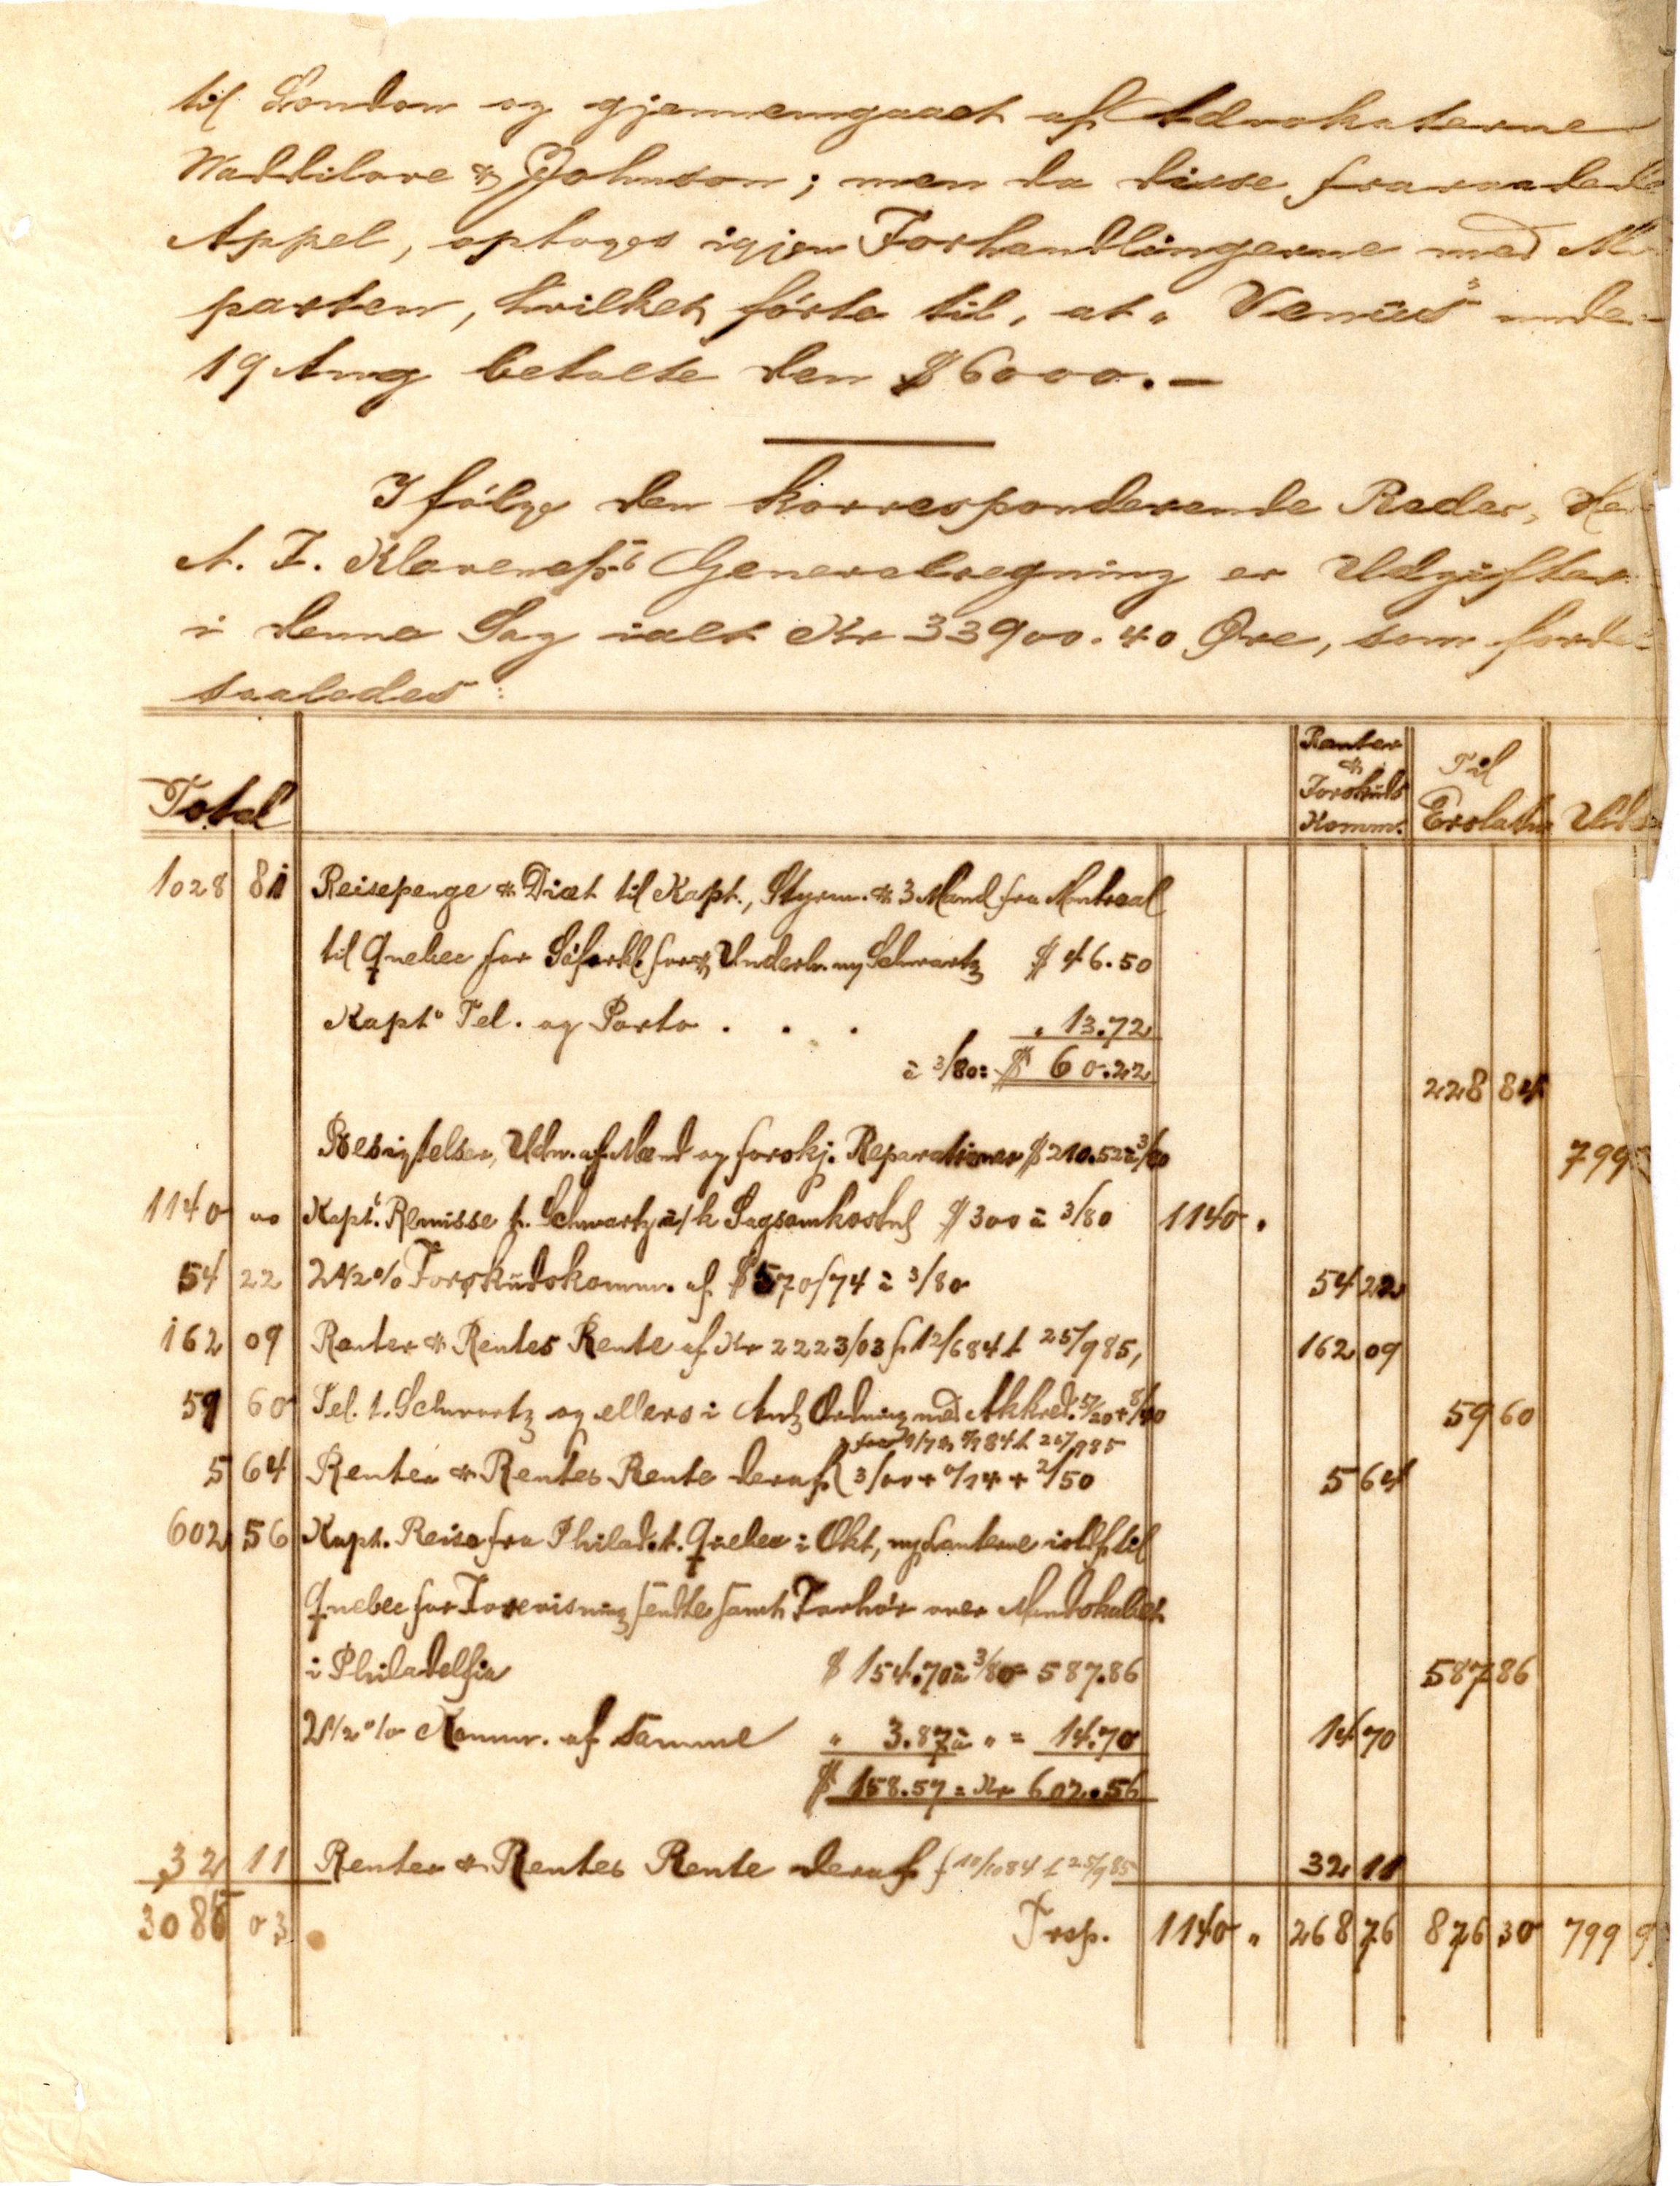 til London og gjennemgaaet af Advokaterne
Waddilove & Johnson; men da disse fraraadede
Appel, optoges igjen Forhandlingerne med M
parten, hvilket førte til, at „Venus" under
19 Aug betalte den $6000.—
Ifølge den korresponderende Reder, Her
A. F. Klaveness's Generalregning er Udgifter
i denne Sag ialt Kr 33900.40 Øre, som forde
saaledes:
Total Renter & Forskuds Komm. Til Erstatn
1028 81 Reisepenge & Diæt til Kapt., Styrm. & 3 Mand fra Montreal
til Quebec for Søforkl. for & Underh. m/ Schwartz $ 46.50
Kapt's Tel. og Porto . . . „ 13.72
à 3/80 = $ 60.22 228 84
Besigtelser, Udn. af Mænd og forskj. Reparationer $ 210.52 à 3/80 799
1140 00 Kapt's Remisse t. Schwartz a/k Sagsomkostn $ 300 à 3/80 1140 „
54 22 2 1/2 % Forskudskomm. af $570/74 à 3/80 54 22
162 09 Renter & Rentes Rente af Kr 2223/03 f 12/6 84 t 25/9 85, 162 09
59 60 Tel. t. Schwartz og ellers i Ordning med Akkred. 59 60
t 25/9 85
5 64 Renter & Rentes Rente deraf 3/00 + 0/24 + 2/50 5 64
602 56 Kapt. Reise fra Philad. t. Quebec i Okt, til
Quebec for Forevisning sendte samt Forhør over Mandskabet
i Philadelfia $ 154.70 à 3/80 = 587.86 587 86
2 1/2 % Komm. af samme „ 3.87 à „ = 14.70 14 70
$ 158.57 = Kr 602.56
32 11 Renter & Rentes Rente deraf f 10/10 84 t 25/9 85 32 11
3085 03 Trsp. 1140 „ 268 76 876 30 799 9